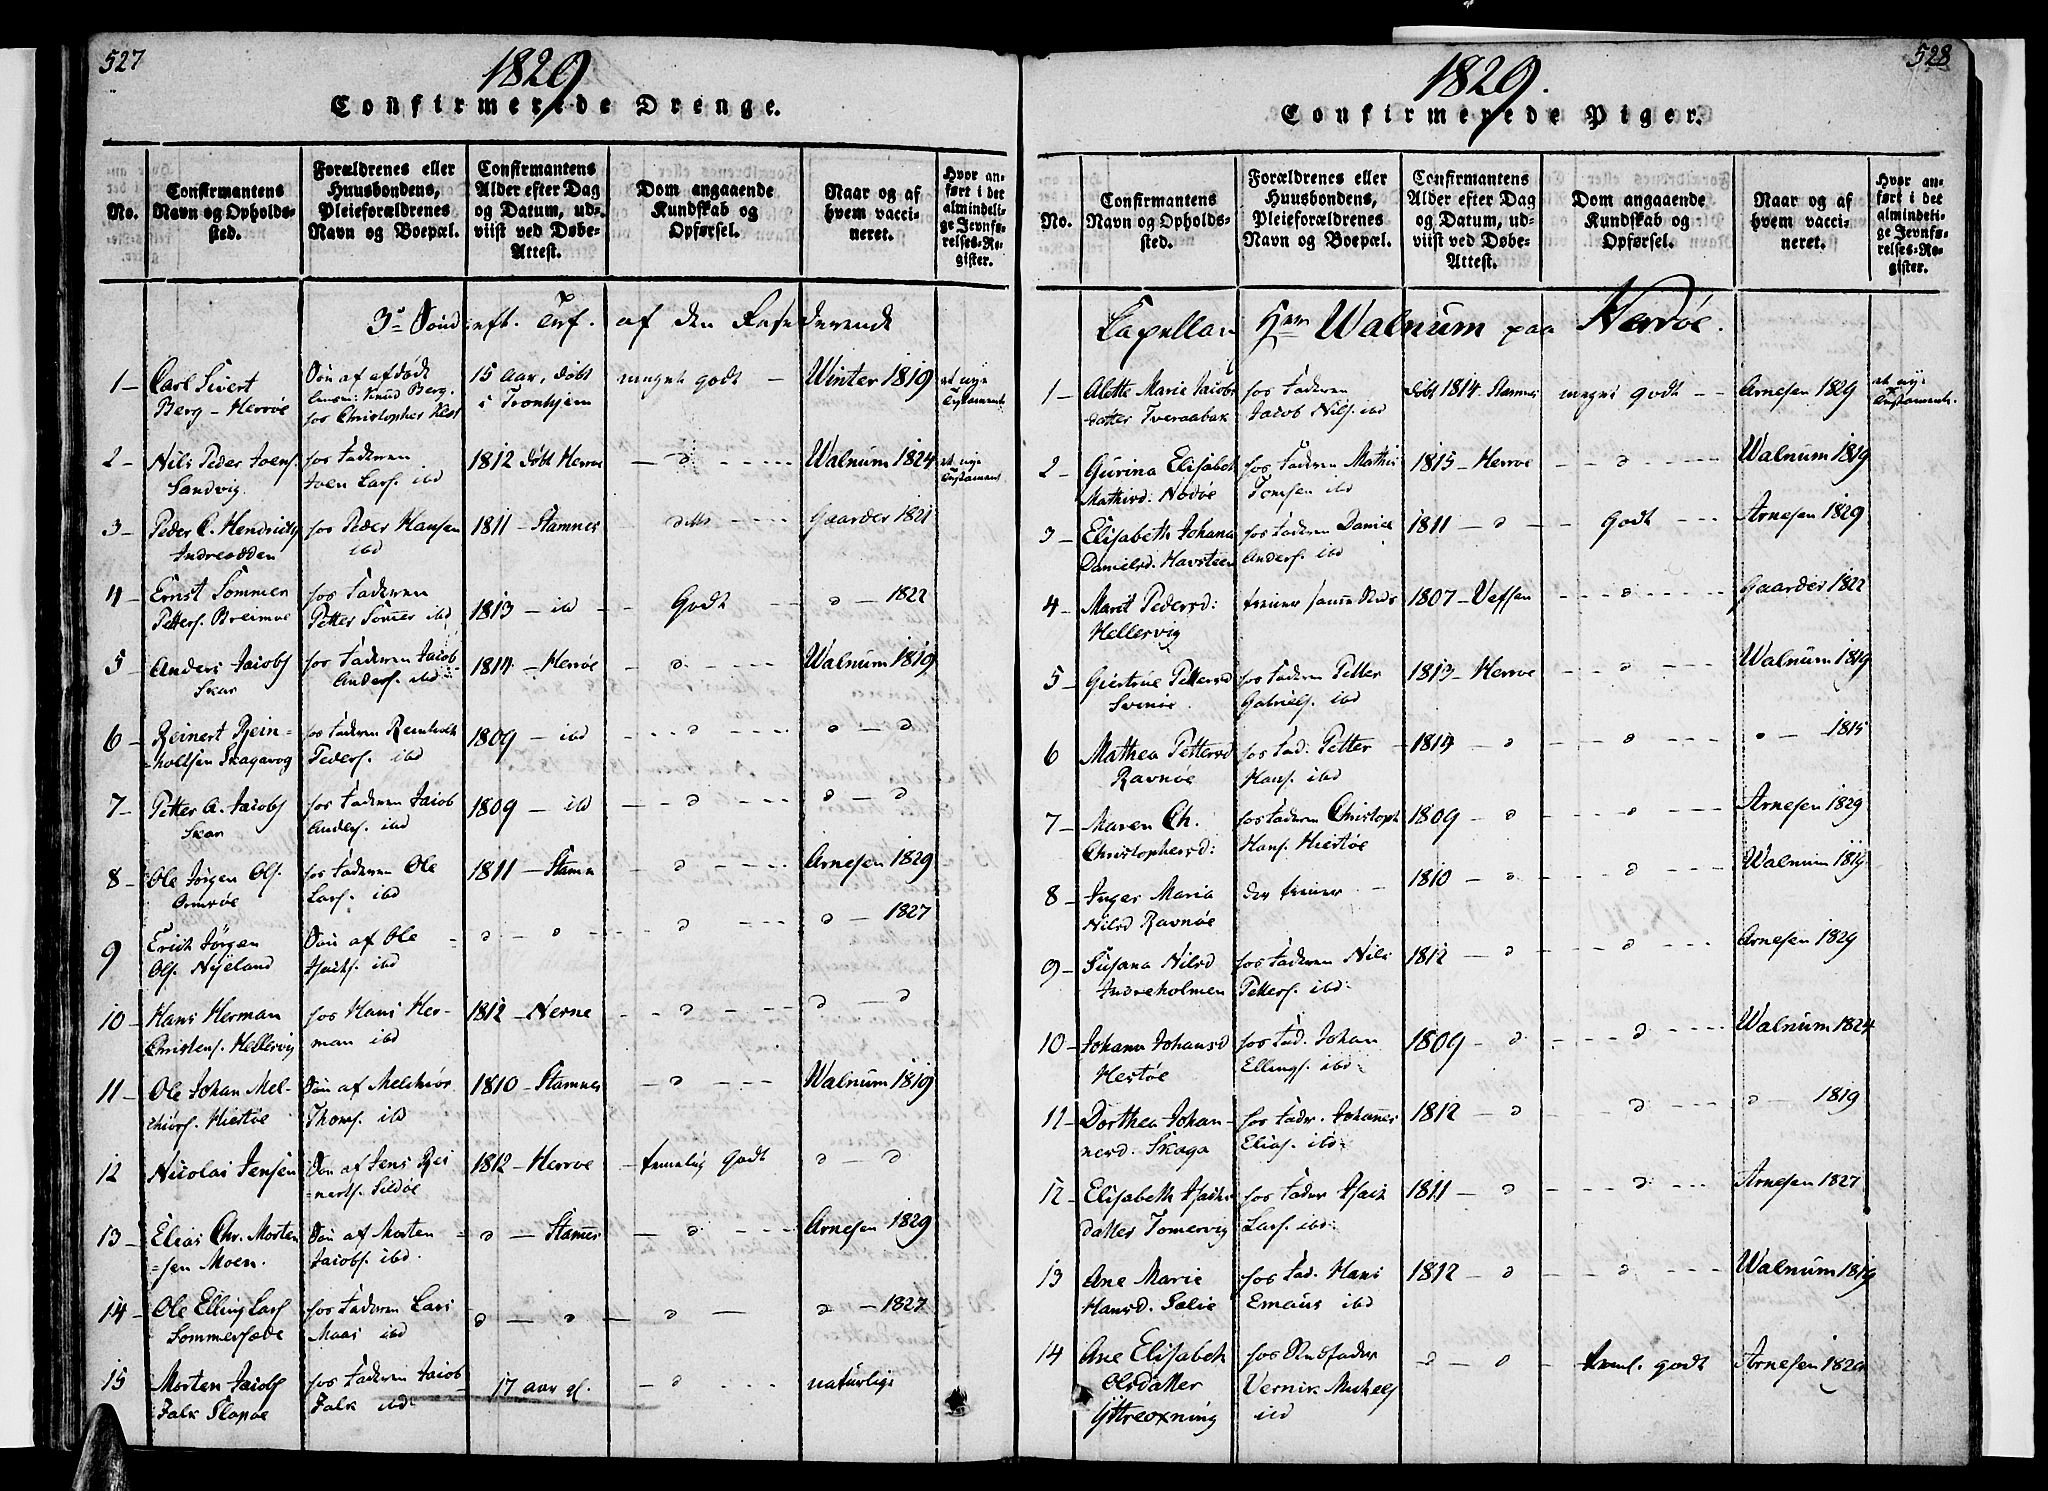 527
1829
Confirmerede Drenge.
No.
Confirmantens
Navn og Opholds-
sted.
Forældrenes eller
Huusbondens,
Pleieforældrenes
Navn og Boepæl.
Confirmantens
Alder efter Dag
og Datum, ud-
viist ved Døbe-
Attest.
Dom angaaende
Kundskab og
Opførsel.
Naar og af
hvem vacci-
neret.
Hvor an-
ført i det
almindeli-
ge Jevnfø-
relses-Re-
gister.
af den
1 – Carl Sivert
Berg – Herrøe
Søn af afdøde
Knud Berg.
hos Christopher
15 aar, døbt
i Tronhjem
meget godt –
Winter 1819
2 – Nils Peder Joens.
Sandvig.
hos Faderen
Joen Lars. ibd
1812 døbt Herrøe
– d – - - -
Walnum 1824
3 – Peder C. Hendriks
Indreødden
hos Peder Hansen
ibd
1811 – Stamnes
– ditto – - - -
Gaarder 1821
4 – Ernst Sommer
Petters. Breimoe
hos Faderen
Petter Somer ibd
1813 – ibd
Godt
d – 1822
5 – Anders Jacobs
Skar
hos Faderen Jacob
Anders. ibd
1814 – Herrøe
– d – - - -
Walnum 1819
6 – Reinert Rein-
=holtsen Skagavog
hos Faderen Reinholt
Peders. ibd
1809 – ibd
- - - d - - -
d – d
7 – Petter A. Jacobs
Skar
hos Faderen Jacob
Anders. ibd
1809 – ibd
– – d – - - -
d – d
8 – Ole Jørgen Ols.
Ormsøe
hos Faderen Ole
Lars. ibd
1811 – Stamn
- - - d - - -
Arnesen 1829
9 Erich Jørgen
Ols. Nyeland
Søn af Ole
Isachs. ibd
d – d
d
d – 1827
10 – Hans Herman
Christens. Hellesvig
hos Hans Her-
man ibd
1812 – Nerne
- - d - - -
d – d
11 – Ole Johan Mel-
chiors. Hiertøe
Søn af Melchior
Thoms. ibd
1810 – Stamnes
– d – - - -
Walnum 1819
12 Nicolai Jensen
Søn af Jens Rei
=nerts. Sildøe
1812 – Herrøe
– temelig godt
d – d
13 – Elias Chr. Morten
=sen Moen.
Søn af Morten
Jacobs. ibd.
d – Stamnes
– d – - - -
Arnesen 1829
14 – Ole Elling Lars
Sommersæde
hos Faderen Lars
Maas ibd
d – d
d –
d – 1827
15 Morten Jacobs
Falk Slapøe
hos Faderen Jacob
Falk ibd.
17 aar gl.
– d . . .
naturlige
528
1829.
Confirmerede Piger.
No.
Confirmantens
Navn og Opholds-
sted.
Forældrenes eller
Huusbondens,
Pleieforældrenes
Navn og Boepæl.
Confirmantens
Alder efter Dag
og Datum, ud-
viist ved Døbe-
Attest.
Dom angaaende
Kundskab og
Opførsel.
Naar og af
hvem vacci-
neret.
Hvor an-
ført i det
almindeli-
ge Jevnfø-
relses-Re-
gister.
Capellan Herr Walnum paa Herrøe.
1 – Alette Marie Jacobs
datter Tveraabak
hos Faderen
Jacob Nils. ibd
døbt 1814 Stamnes
meget godt – -
Arnesen 1829
2 – Gurina Elisabet
Mathisd: Nordøe
hos Faderen Mathis
Tomsen ibd
1815 – Herrøe
- - d - - - -
Walnum 1819
3 – Elisabeth Johana
Danielsd. Havsteen
hos Faderen Daniel
Anders. ibd
1811 – d –
– Godt - - -
Arnesen 1829
4 – Marit Pedersd:
Hellesvig
1807 – Vefsen
- - - d - - -
Gaarder 1822
5 – Giertrue Pettersd
Svinøe
hos Faderen Petter
Gabriels. ibd
1813 – Herrøe
- - d - - -
Walnum 1819
6 Mathea Pettersd
Ravnøe
hos Fad: Petter
Hans. ibd
– 1814 – d –
- - d - - -
– 1815
7 – Maren Ch.
Christophersd:
hos Faderen Christoph
Hans. Hiestøe
1809 – d –
d
Arnesen 1829
8 – Inger Maria
Nilsd Ravnøe
der tiener –
1810 – d –
d
Walnum 1819
9 – Susana Nilsd
Indreholmen
hos Faderen Nils
Petters. ibd.
1812 – d
- - d - - -
Arnesen 1829
10 – Johana Johansd
Hestøe
hos Fad. Johan
Ellings. ibd.
1809 – d
d - - -
Walnum 1824
11 – Dorthea Johan-
nesd. Skaga
hos Fader. Johannes
Elias. ibd.
1812 – d
d - - -
d – 1819
12 – Elisabeth Isachs
datter Tomervig
hos Fader Isach
Lars. ibd.
1811 – d –
d - - -
Arnesen 1827
13 Ane Marie
Hansd. Sælie
hos Fad. Hans
Emaus ibd
1812 – d –
d - -
Walnum 1819
14 Ane Elisabeth
Olsdatter
Yttreoxning
hos Stedfader
Vernik Michels
ibd
d – d –
teml. godt
Arnesen 1829